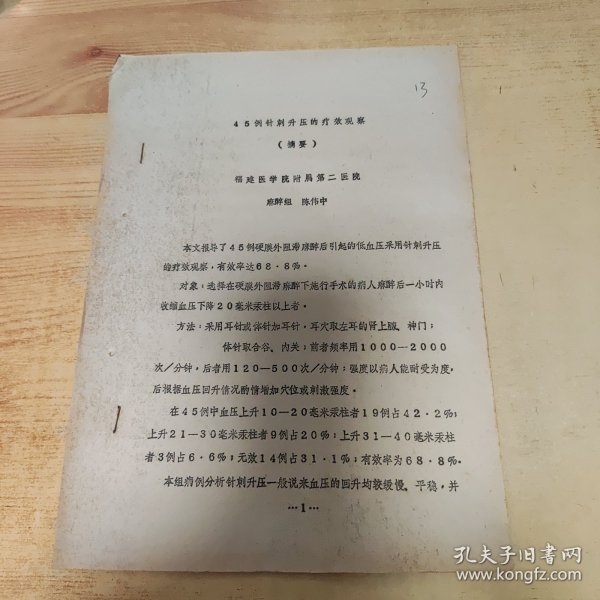 13
45例针刺升压的疗效观察
(摘要)
福建医学院附属第二医院
麻醉组 陈伟中
本文报导了45例硬膜外阻滞麻醉后引起的低血压采用针刺升压
的疗效观察,有效率达68·8%。
对象:选择在硬膜外阻滞麻醉下施行手术的病人麻醉后一小时内
收缩血压下降20毫米汞柱以上者。
方法:采用耳针或体针加耳针,耳穴取左耳的肾上腺、神门;
体针取合谷、内关;前者频率用1000—2000
次/分钟,后者用120—500次/分钟;强度以病人能耐受为度,
后根据血压回升情况酌情增加穴位或刺激强度。
在45例中血压上升10—20毫米汞柱者19例占42·2%;
上升21—30毫米汞柱者9例占20%;上升31—40毫米汞柱
者3例占6·6%;无效14例占31·1%;有效率为68·8%。
本组病例分析针刺升压一般说来血压的回升均较缓慢、平稳,并
…1…
孔夫子旧书网
www.kongfz.com